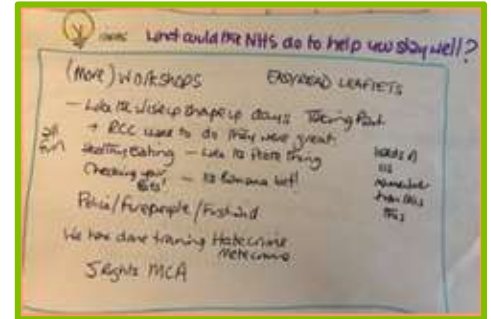 ideas What could the NHS do to help you stay well?
(More) Workshops EASYREAD LEAFLETS
- Like the Wise up Shape up days Taking Part
+ RCC used to do They were great
all fun Healthy Eating - Like the Plate thing
Checking your bits! - the Banana
Police / Firepeople / First Aid
We have done training Hate crime
Mate crime
5 Rights MCA